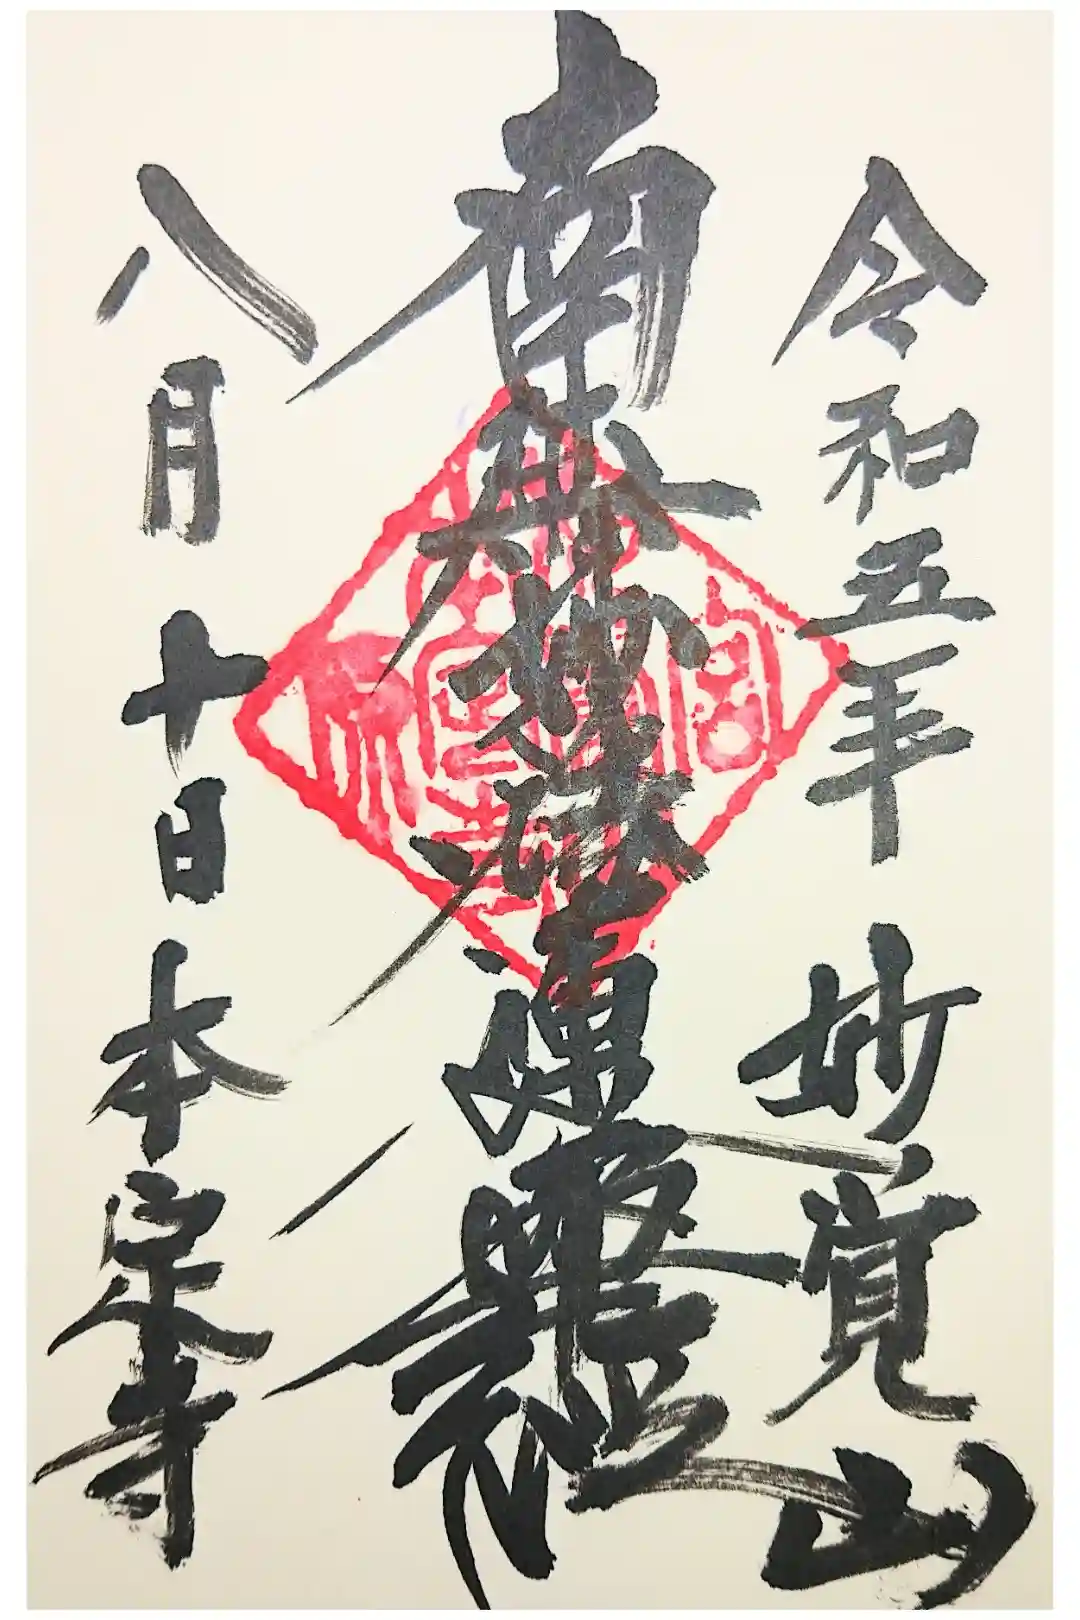 令和五年 妙覚山
南無妙法蓮華經
八月十日 本定寺